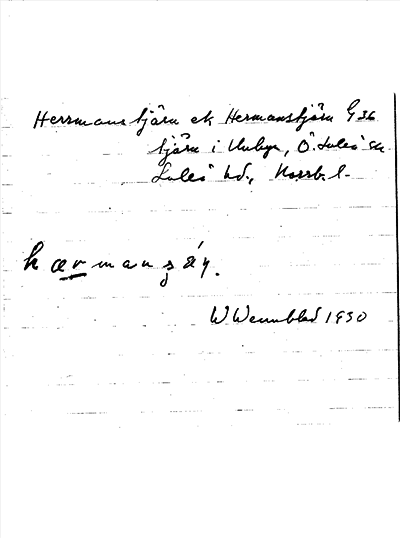 Herrmanstjärn ek Hermanstjärn G36
tjärn i Unbyn, Ö. Luleå sn
Luleå hd., Norrb. l.
hærmansʒäŋ.
W Wennblad 1930